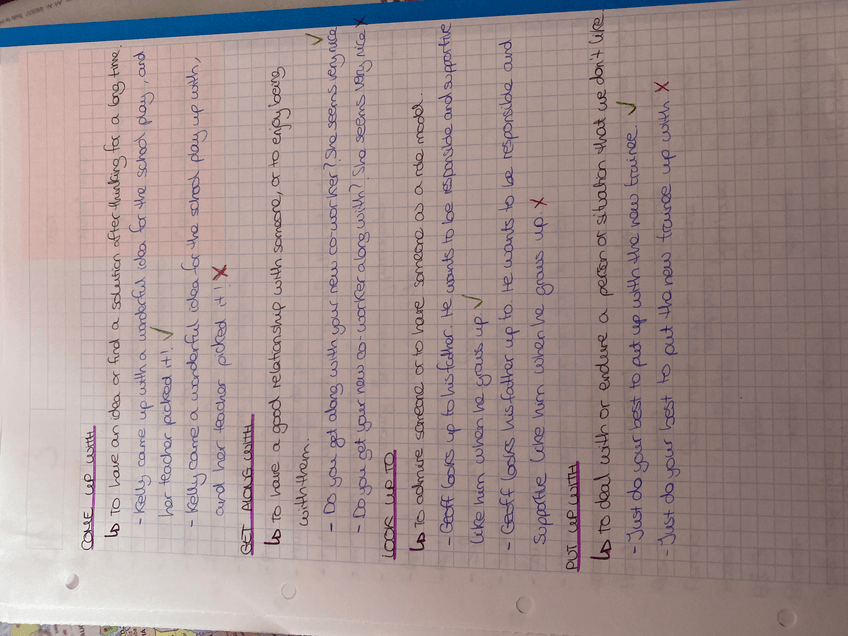 COME UP WITH
↳ To have an idea or find a solution after thinking for a long time.
- Kelly came up with a wonderful idea for the school play, and
her teacher picked it! ✓
- Kelly came a wonderful idea for the school play up with,
and her teacher picked it! X
GET ALONG WITH
↳ To have a good relationship with someone, or to enjoy being
with them.
- Do you get along with your new co-worker? She seems very nice ✓
- Do you get your new co-worker along with? She seems very nice X
LOOK UP TO
↳ To admire someone or to have someone as a role model.
- Geoff looks up to his father. He wants to be responsible and supportive
like him when he grows up. ✓
- Geoff looks his father up to. He wants to be responsible and
supportive like him when he grows up. X
PUT UP WITH
↳ To deal with or endure a person or situation that we don't like.
- Just do your best to put up with the new trainee. ✓
- Just do your best to put the new trainee up with. X